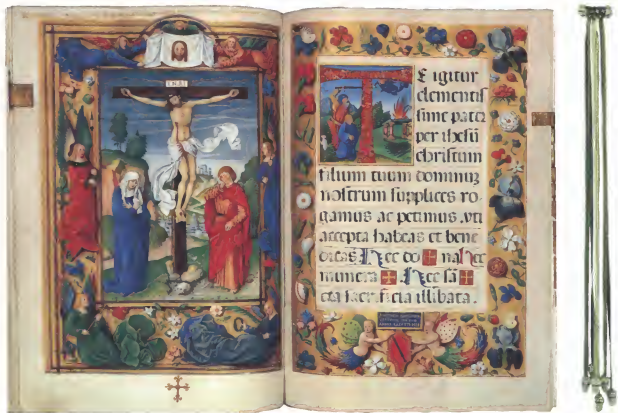 INRI
T
E igitur
clementis
sime pater
per ihesū
christum
filium tuum dominuꝫ
nostrum supplices ro
gamus ac petimus .vti
accepta habeas et bene
dicas Hec do✠na Hec
munera ✠ Hec sā✠
cta sacrificia illibata.